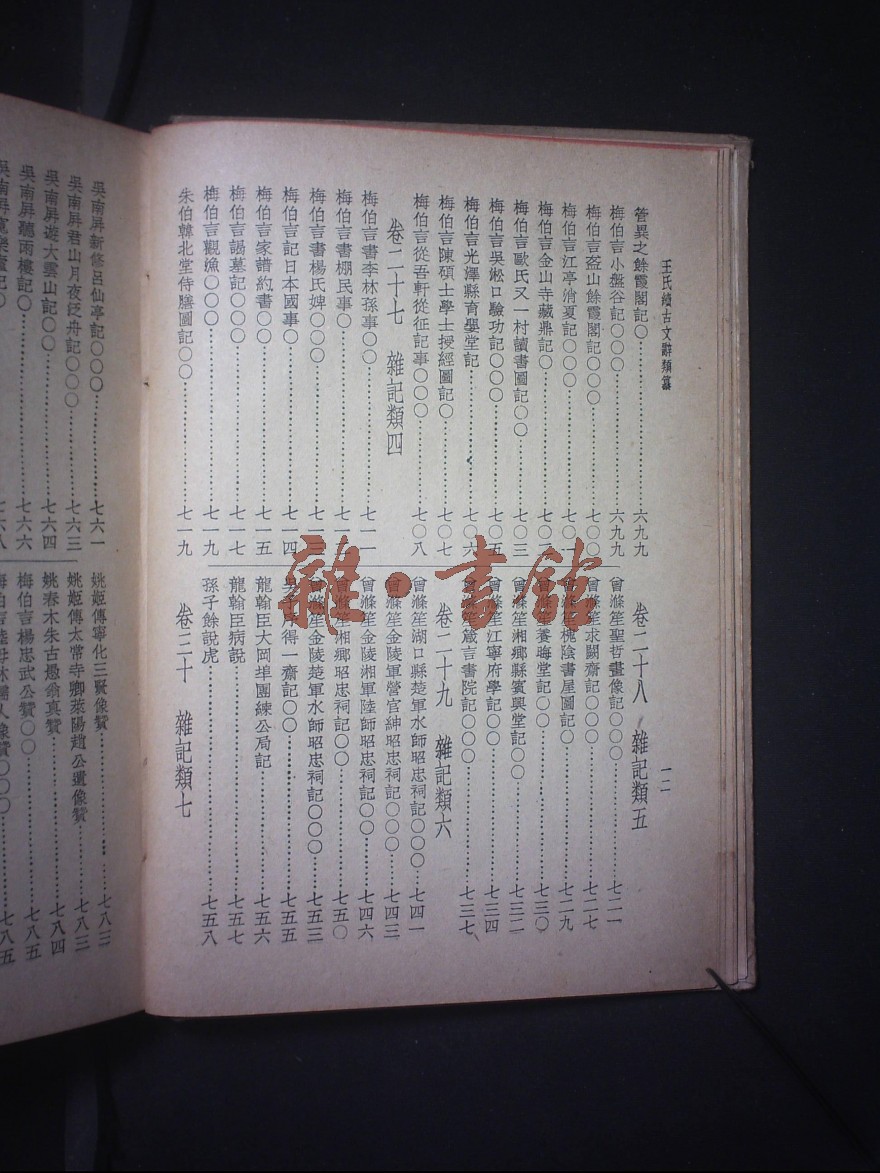 王氏續古文辭類纂
一二
管異之餘霞閣記〇……六九九
梅伯言小盤谷記〇〇〇……六九九
梅伯言盋山餘霞閣記〇〇〇……七〇〇
梅伯言江亭消夏記〇〇〇……七〇一
梅伯言金山寺藏鼎記〇……七〇二
梅伯言歐氏又一村讀書圖記〇〇……七〇三
梅伯言吳淞口驗功記〇〇〇……七〇五
梅伯言光澤縣育嬰堂記……七〇六
梅伯言陳碩士學士授經圖記〇……七〇七
梅伯言從吾軒從征記事〇〇〇……七〇八
卷二十七 雜記類四
梅伯言書李林孫事〇〇……七一一
梅伯言書棚民事〇……七一
梅伯言書楊氏婢〇〇〇……七一三
梅伯言記日本國事〇……七一四
梅伯言家譜約書〇〇……七一五
梅伯言謁墓記〇〇〇……七一七
梅伯言觀漁〇〇〇……七一九
朱伯韓北堂侍膳圖記〇〇……七一九
卷二十八 雜記類五
曾滌笙聖哲畫像記〇〇〇……七二一
曾滌笙求闕齋記〇〇〇……七二七
曾滌笙槐陰書屋圖記〇……七二九
曾滌笙養晦堂記〇〇……七三〇
曾滌笙湘鄉縣賓興堂記〇〇……七三二
曾滌笙江寧府學記〇〇……七三四
曾滌笙箴言書院記〇〇〇……七三七
卷二十九 雜記類六
曾滌笙湖口縣楚軍水師昭忠祠記〇〇〇……七四一
曾滌笙金陵軍營官紳昭忠祠記〇〇〇……七四三
曾滌笙金陵湘軍陸師昭忠祠記〇〇……七四六
曾滌笙湘鄉昭忠祠記〇〇……七五〇
曾滌笙金陵楚軍水師昭忠祠記〇〇〇……七五三
吳子序得一齋記〇〇……七五五
龍翰臣大岡埠團練公局記……七五六
龍翰臣病說……七五七
孫子餘說虎……七五八
卷三十 雜記類七
吳南屏新修呂仙亭記〇〇〇……七六一
吳南屏君山月夜泛舟記〇〇〇……七六三
吳南屏遊大雲山記〇〇……七六四
吳南屏聽雨樓記〇……七六六
吳南屏寬樂廬記〇……七六八
姚姬傳寧化三賢像贊……七八三
姚姬傳太常寺卿萊陽趙公遺像贊……七八三
姚春木朱古愚翁真贊……七八四
梅伯言楊忠武公贊〇〇……七八五
梅伯言陸母林孺人像贊〇〇〇……七八五
雜·書館